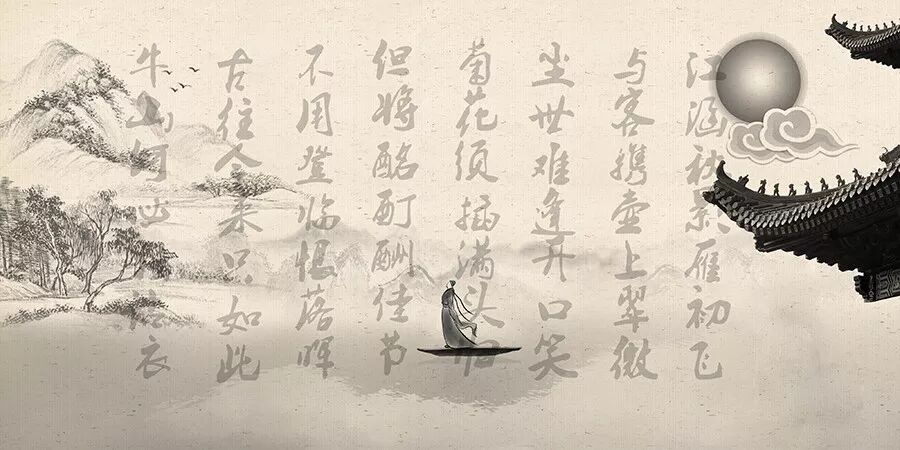 江涵秋影雁初飞
与客携壶上翠微
尘世难逢开口笑
菊花须插满头归
但将酩酊酬佳节
不用登临恨落晖
古往今来只如此
牛山何必沾衣